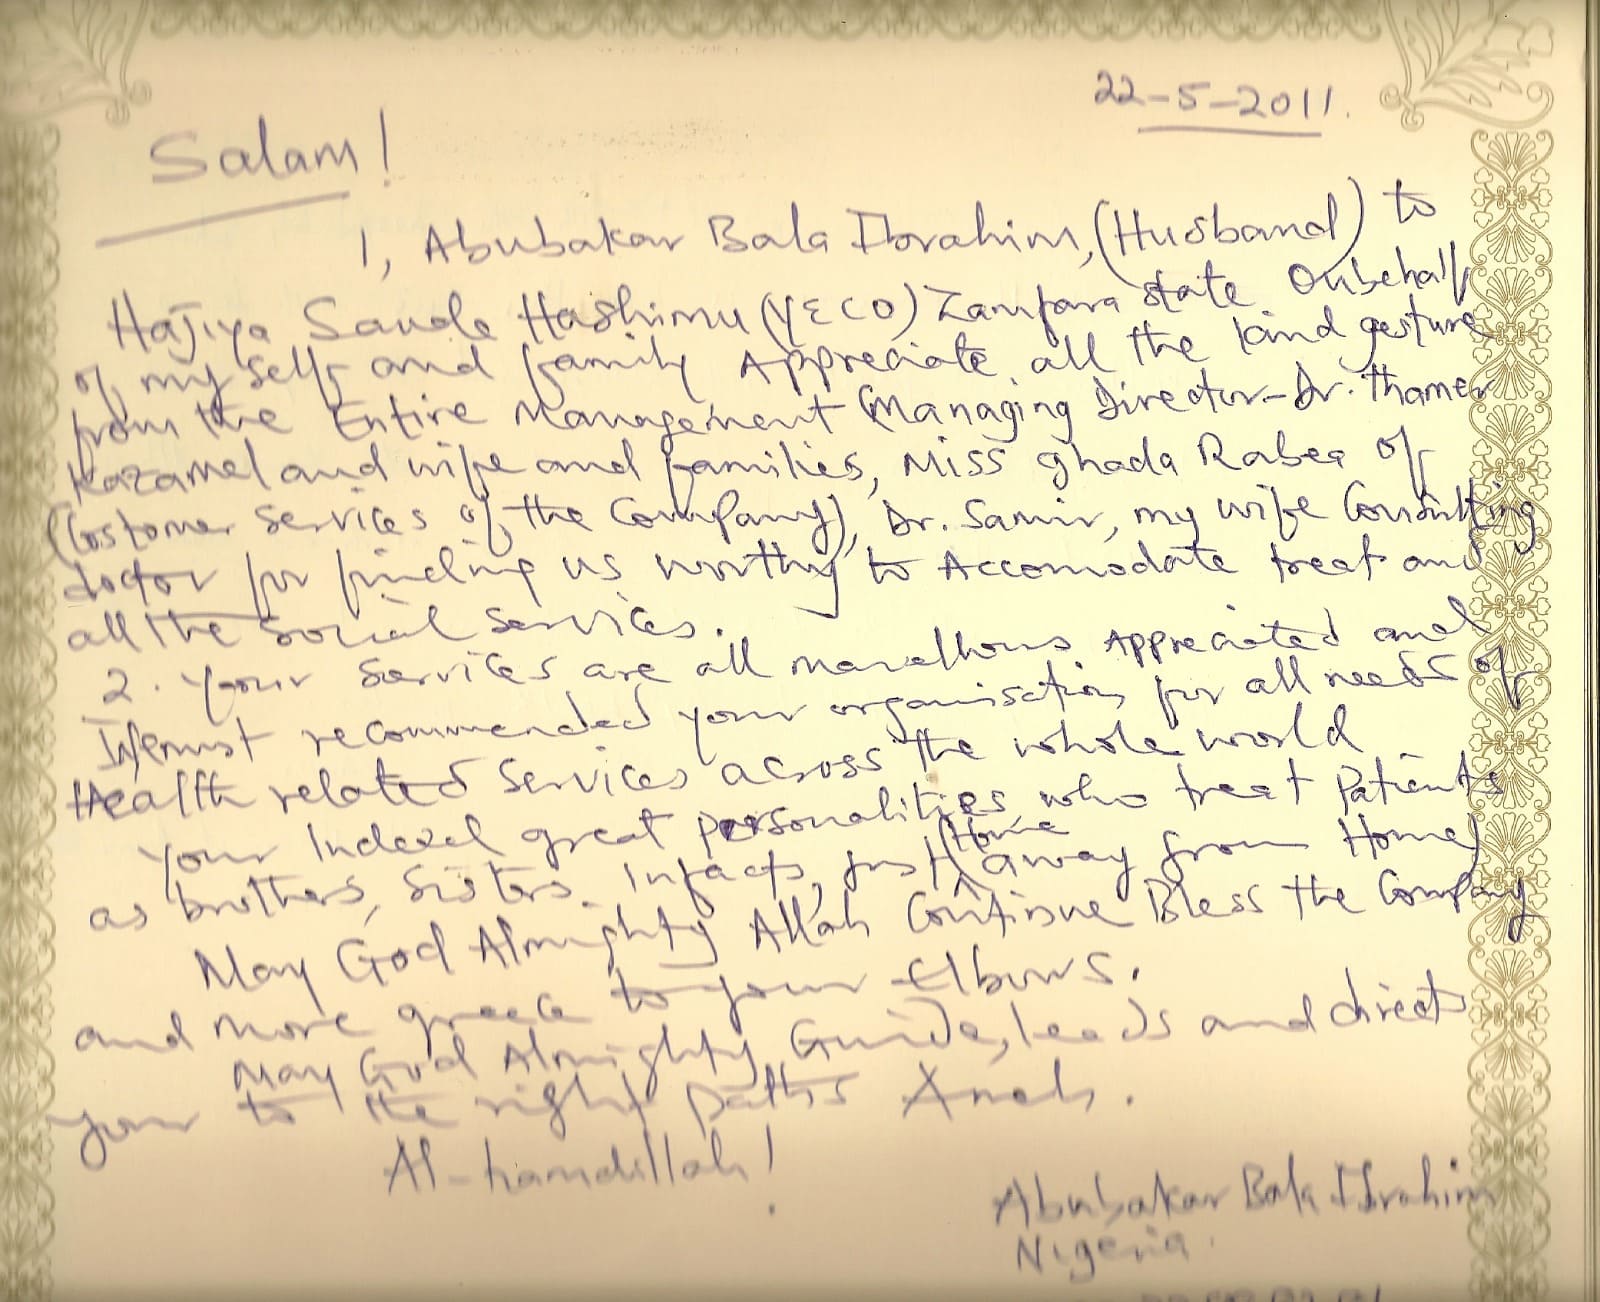 22-5-2011.
Salam!
1, Abubakar Bala Ibrahim, (Husband) to
Hajiya Saude Hashimu (YECO) Zamfara state Onbehalf
of my self and family Appreciate all the kind gesture
from the Entire Management (Managing Director-Dr. Thamer
Kazamel and wife and families, Miss ghada Rabea of
(Costomer Services of the Company), Dr. Samir, my wife Consulting
doctor for finding us worthy to Accomodate treat and
all the social services.
2. Your Services are all marvellous Appreciated and
must recommended your organisation for all needs of
Health related Services across the whole world
Your Indeed great personalities who treat Patients
as brothers, Sisters. Infacts, just Home away from Home)
May God Almighty Allah Continue Bless the Company
and more greece to your Elbows.
May God Almighty Guide, leads and directs
your to the right paths Ameh.
Al-hamdillah!
Abubakar Bala Ibrahim
Nigeria.